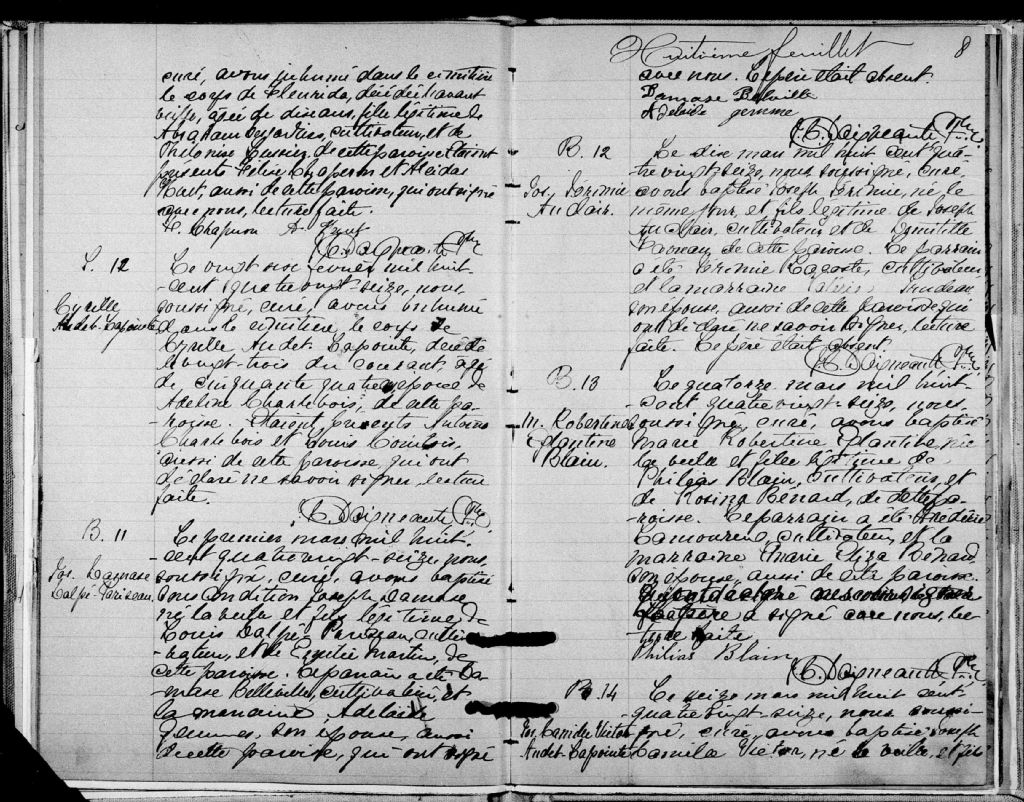 curé, avons inhumé dans le cimetière
le corps de Fleurida, décédée l'avant
veille, âgée de dix ans, fille légitime de
Abraham Desjardins, cultivateur, et de
Philomène Lussier, de cette paroisse. Etaient
présents Chaperon et Alcidas
Huet, aussi de cette paroisse, qui ont signé
avec nous, lecture faite.
Chaperon A. Huet
C. Daigneault Ptre
S. 12
Cyrille
Audet-Lapointe
Le vingt six février mil huit
-cent quatre vingt-seize, nous,
soussigné, curé, avons inhumé
dans le cimetière, le corps de
Cyrille Audet Lapointe, décédé
le vingt-trois du courant, âgé
de cinquante quatre, époux de
Adeline Chartebois, de cette pa-
-roisse. Etaient présents Antoine
Chartebois et Louis
aussi de cette paroisse, qui ont
déclaré ne savoir signer, lecture
faite.
C. Daigneault Ptre
B. 11
Jos. Damase
Dalpé-Pariseau.
Le premier mars mil huit-
-cent quatre vingt-seize, nous,
soussigné, curé, avons baptisé
sous condition Joseph Damase
né la veille et fils légitime de
Louis Dalpé Pariseau, culti-
-vateur, et de Emélie Martin, de
cette paroisse. Le parrain a été Da-
-mase Belleville, cultivateur, et
la marraine Adelaide
Jemme, son épouse, aussi
de cette paroisse, qui ont signé
Huitième feuillet 8
avec nous. Le père était absent.
Damase Belville
Adelaide jemme
C. Daigneault Ptre
B. 12
Jos. Jérémie
Auclair.
Le dix mars mil huit cent qua-
-tre vingt-seize, nous, soussigné, curé,
avons baptisé Joseph Jérémie, né le
même jour, et fils légitime de Joseph
Auclair, cultivateur, et de Domitille
de cette paroisse. Le parrain
a été Jérémie Lacoste, cultivateur
et la marraine Trudeau
son épouse, aussi de cette paroisse qui
ont déclaré ne savoir signer, lecture
faite. Le père était absent.
C. Daigneault Ptre
B. 13
M. Robertine
Edantine
Blain.
Le quatorze mars mil huit-
-cent quatre vingt-seize, nous,
soussigné, curé, avons baptisé
Marie Robertine née
la veille et fille légitime de
Philias Blain, cultivateur, et
de Rosina Benard, de cette pa-
-roisse. Le parrain a été Frédéric
Lamoureux, cultivateur, et la
marraine Marie Eliza Benard
son épouse, aussi de cette paroisse.
Le père a signé avec nous, lec-
-ture faite
Philias Blain
C. Daigneault Ptre
B. 14
Jos. Camille Victor
Audet Lapointe
Le seize mars mil huit cent
quatre vingt-seize, nous soussi-
-gné, curé, avons baptisé Joseph
Camille Victor, né la veille, et fils